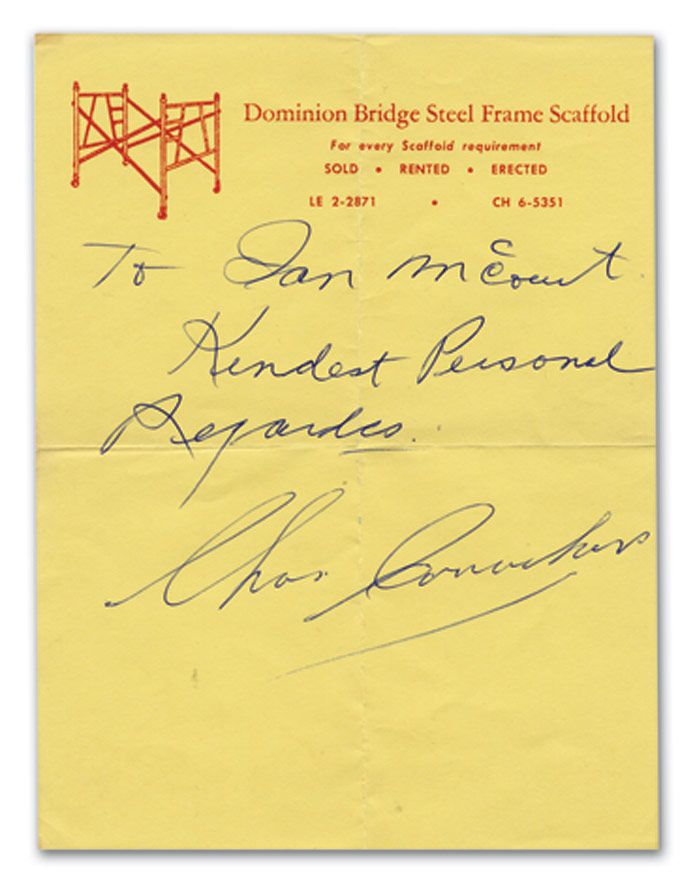 Dominion Bridge Steel Frame Scaffold
For every Scaffold requirement
SOLD • RENTED • ERECTED
LE 2-2871 • CH 6-5351
To Ian McCourt.
Kindest Personal
Regardes.
Chas. Conachers